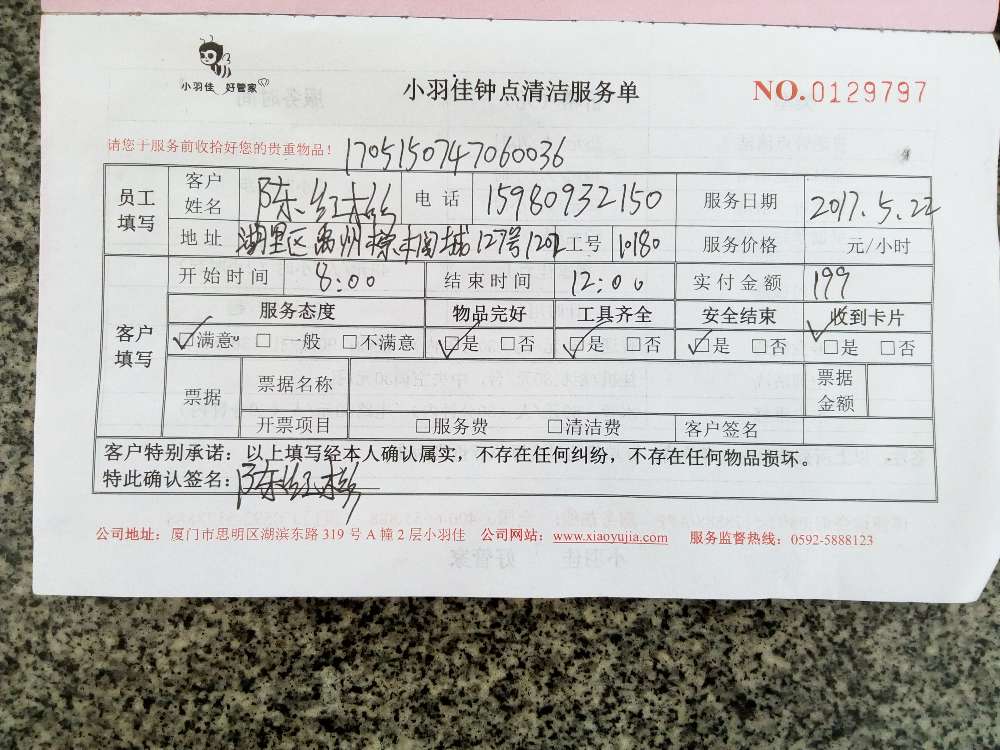 小羽佳 好管家
小羽佳钟点清洁服务单
NO.0129797
请您于服务前收拾好您的贵重物品！ 1705150747060036
员工填写 客户姓名 陈红 电话 15980932150 服务日期 2017.5.22
地址 湖里区禹州 城127号1202 工号 10180 服务价格 元/小时
客户填写 开始时间 8:00 结束时间 12:00 实付金额 199
服务态度 物品完好 工具齐全 安全结束 收到卡片
☑满意 □ 一般 □不满意 ☑是 □否 ☑是 □否 ☑是 □否 ☑是 □否
票据 票据名称 票据金额
开票项目 □服务费 □清洁费 客户签名
客户特别承诺：以上填写经本人确认属实，不存在任何纠纷，不存在任何物品损坏。
特此确认签名：陈红
公司地址：厦门市思明区湖滨东路 319 号 A 幢 2 层小羽佳 公司网站：www.xiaoyujia.com 服务监督热线：0592-5888123